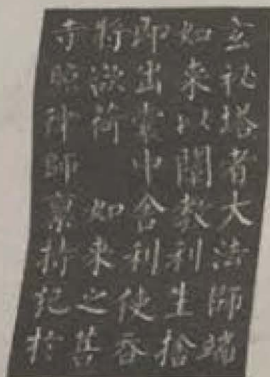 玄祕塔者大法師端
如來以闡教利生捨
即出囊中舍利使吞
將欲荷　如來之菩
寺照律師禀持犯於